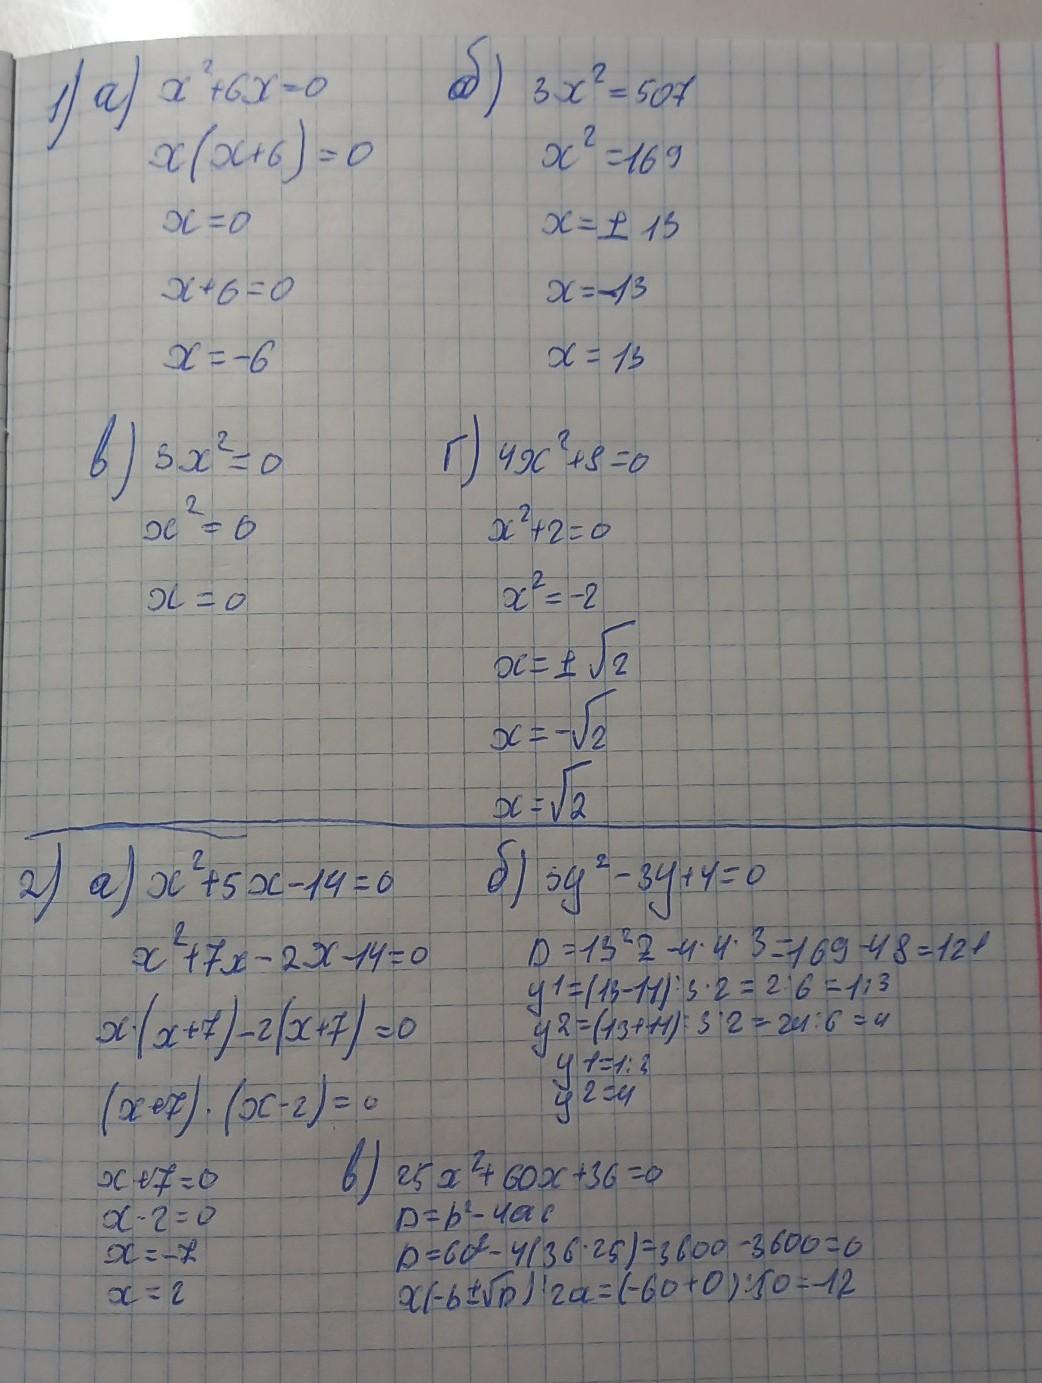 1) а) x²+6x=0
x(x+6)=0
x=0
x+6=0
x=-6
б) 3x²=507
x²=169
x=±13
x=-13
x=13
в) 3x²=0
x²=0
x=0
г) 4x²+8=0
x²+2=0
x²=-2
x=±√2
x=-√2
x=√2
2) а) x²+5x-14=0
x²+7x-2x-14=0
x·(x+7)-2(x+7)=0
(x+7)·(x-2)=0
x+7=0
x-2=0
x=-7
x=2
б) 3y²-3y+4=0
D=13²2-4·4·3=169-48=121
y1=(13-11):3·2=2:6=1:3
y2=(13+11):3·2=24:6=4
y1=1:3
y2=4
в) 25x²+60x+36=0
D=b²-4ac
D=60²-4(36·25)=3600-3600=0
x(-b±√D):2a=(-60+0):50=-12